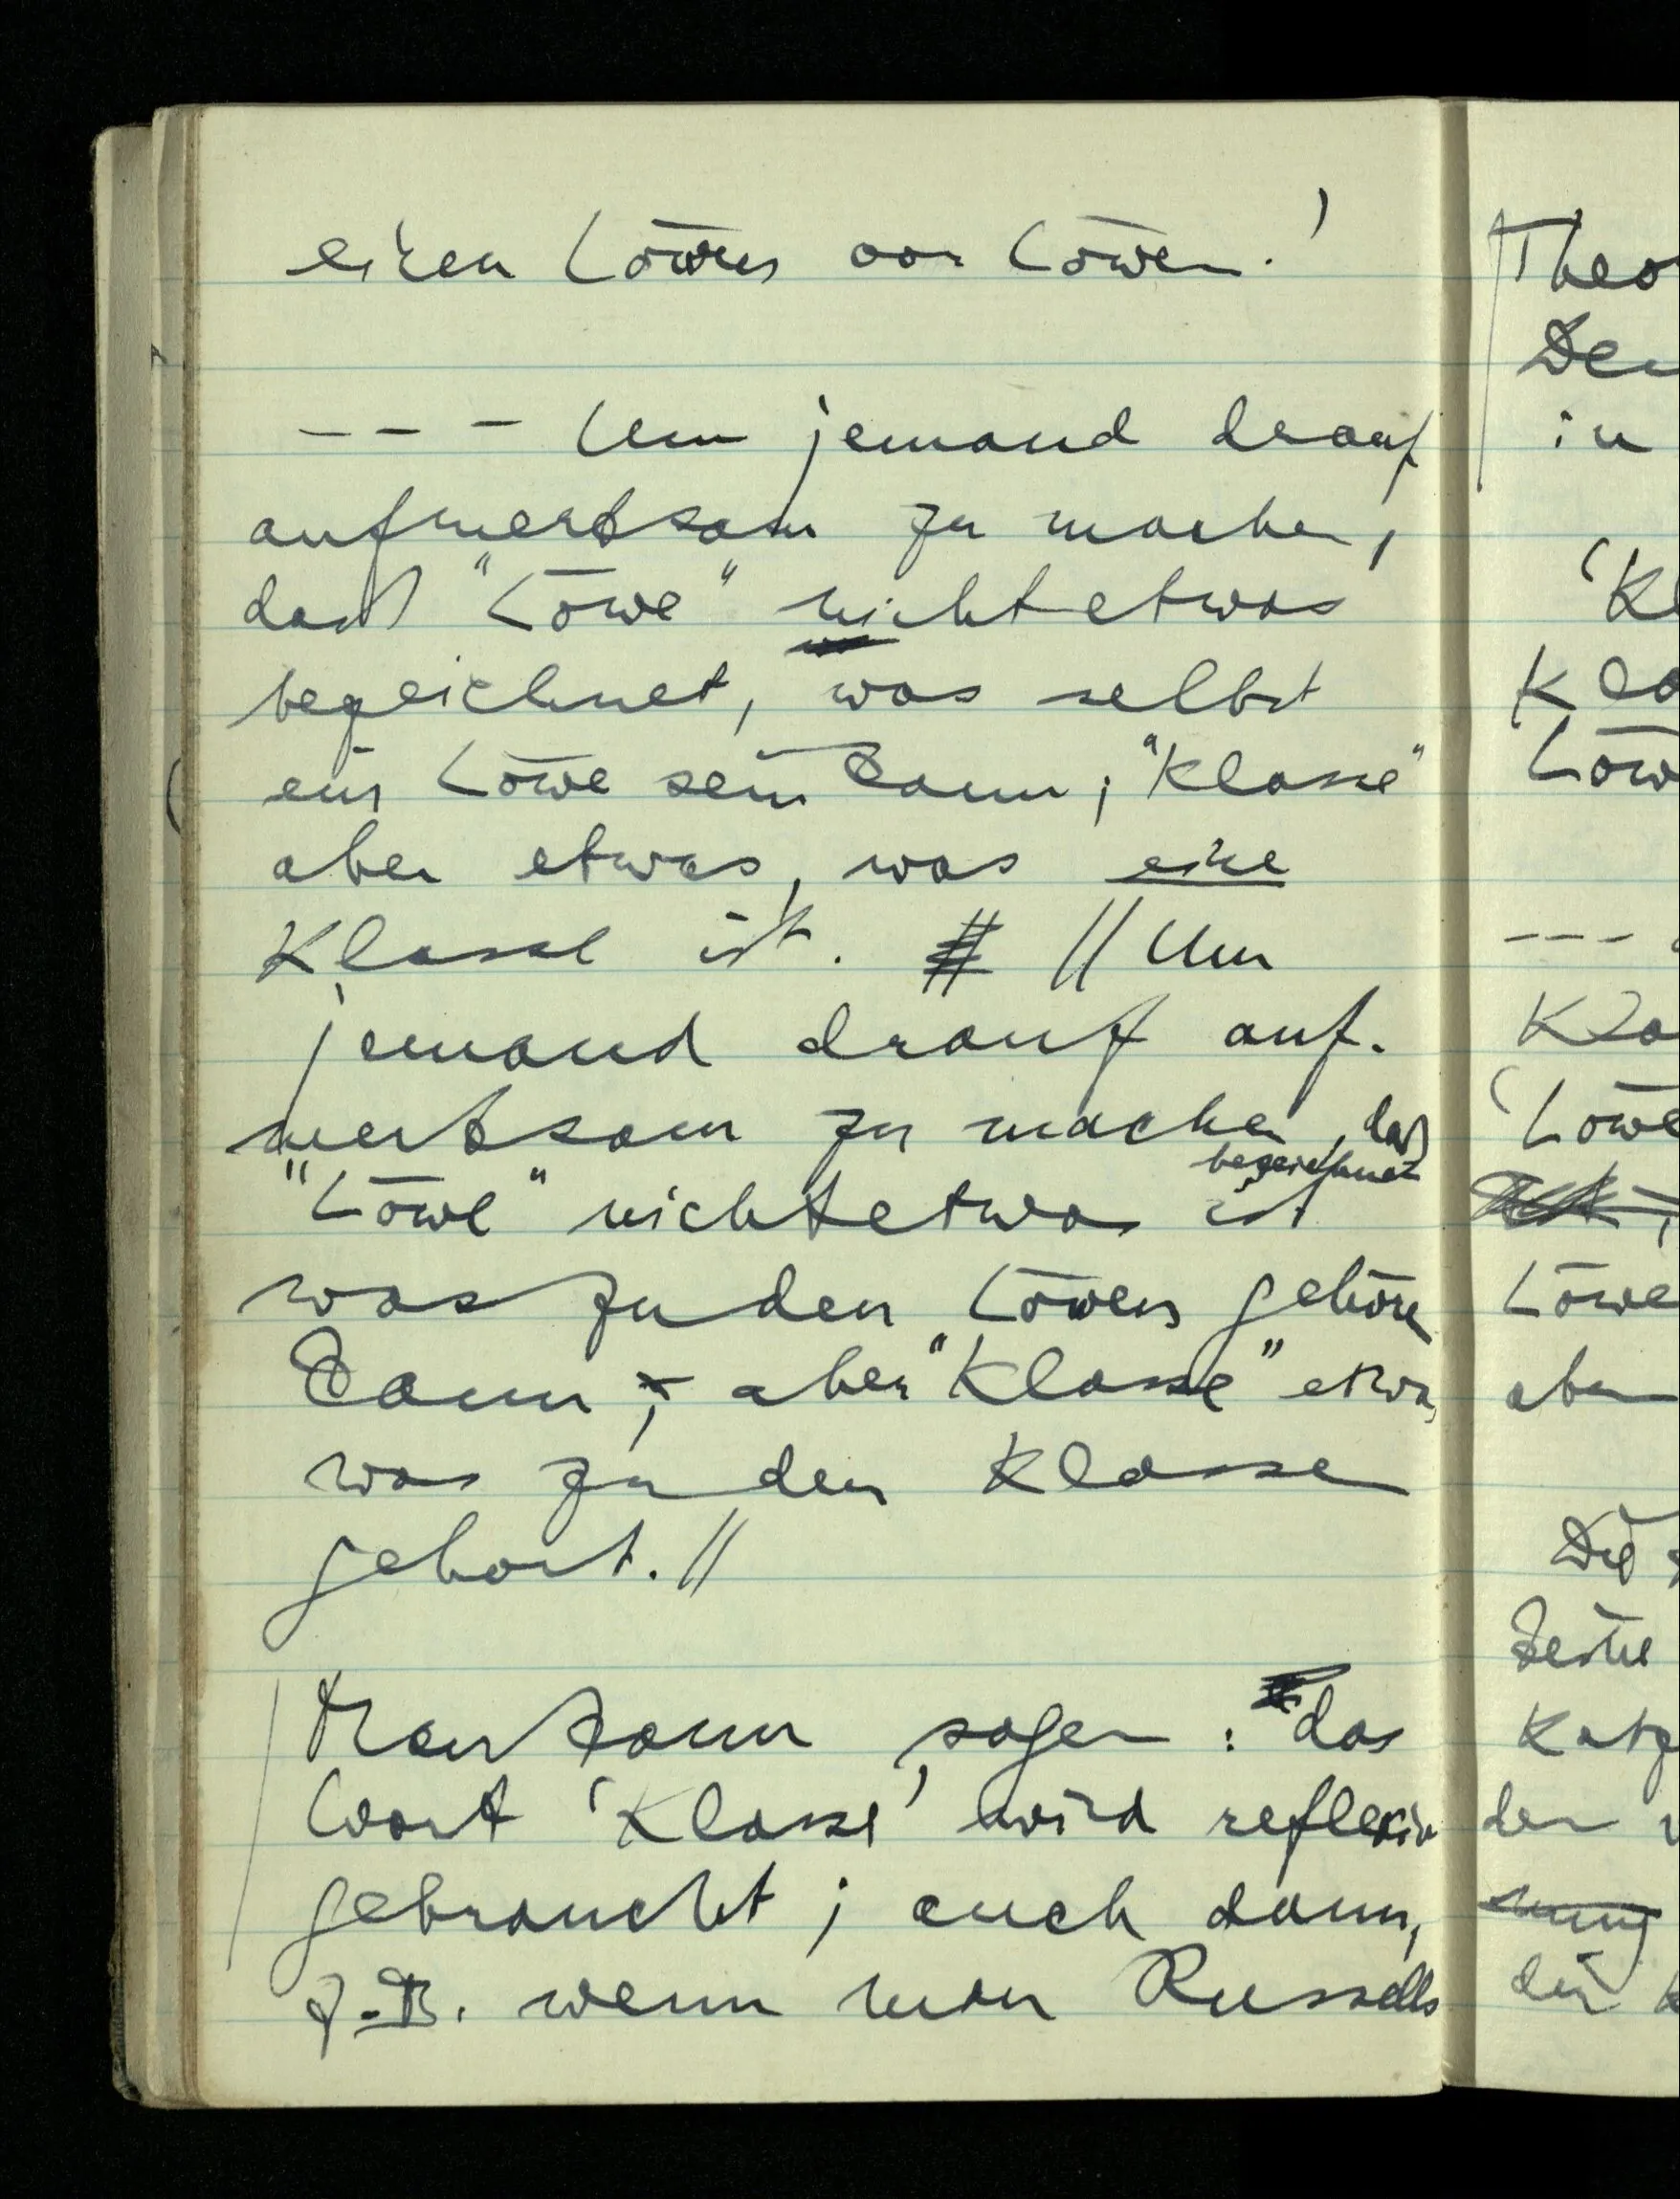 einen Löwen von Löwen.'
– – – Um jemand drauf
aufmerksam zu machen,
daß "Löwe" nicht etwas
bezeichnet, was selbst
ein Löwe sein kann; "Klasse"
aber etwas, was eine
Klasse ist. // Um
jemand drauf auf-
merksam zu machen, daß
bezeichnet
"Löwe" nicht etwas ist
was zu den Löwen gehören
kann, aber "Klasse" etwas
was zu den Klassen
gehört. //
Man kann sagen: das
Wort 'Klasse' wird reflexiv
gebraucht; auch dann,
z.B. wenn man Russells
Theo
Den
in
'Kl
Kla
Löw
---
Kla
'Löwe
Löwe
aber
Die
Seine
Katz
der
die